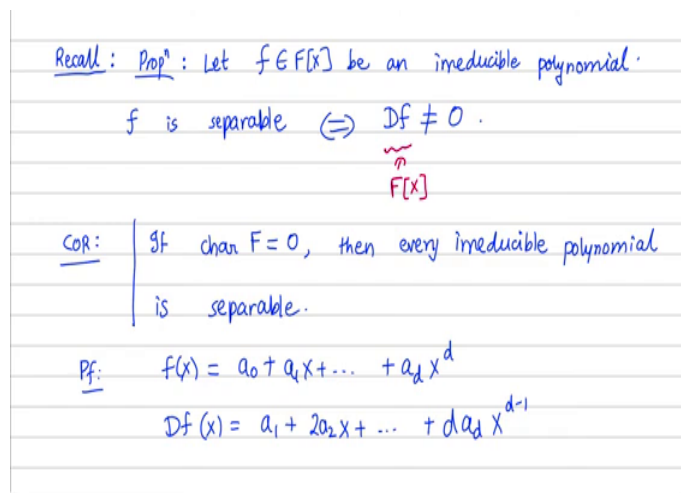 Recall : Propⁿ : Let f ∈ F[x] be an irreducible polynomial.
f is separable ⟺ Df ≠ 0 .
F[x]
COR : If char F = 0, then every irreducible polynomial
is separable.
Pf: f(x) = a₀ + a₁x + ... + a_d x^d
Df(x) = a₁ + 2a₂x + ... + da_d x^{d-1}